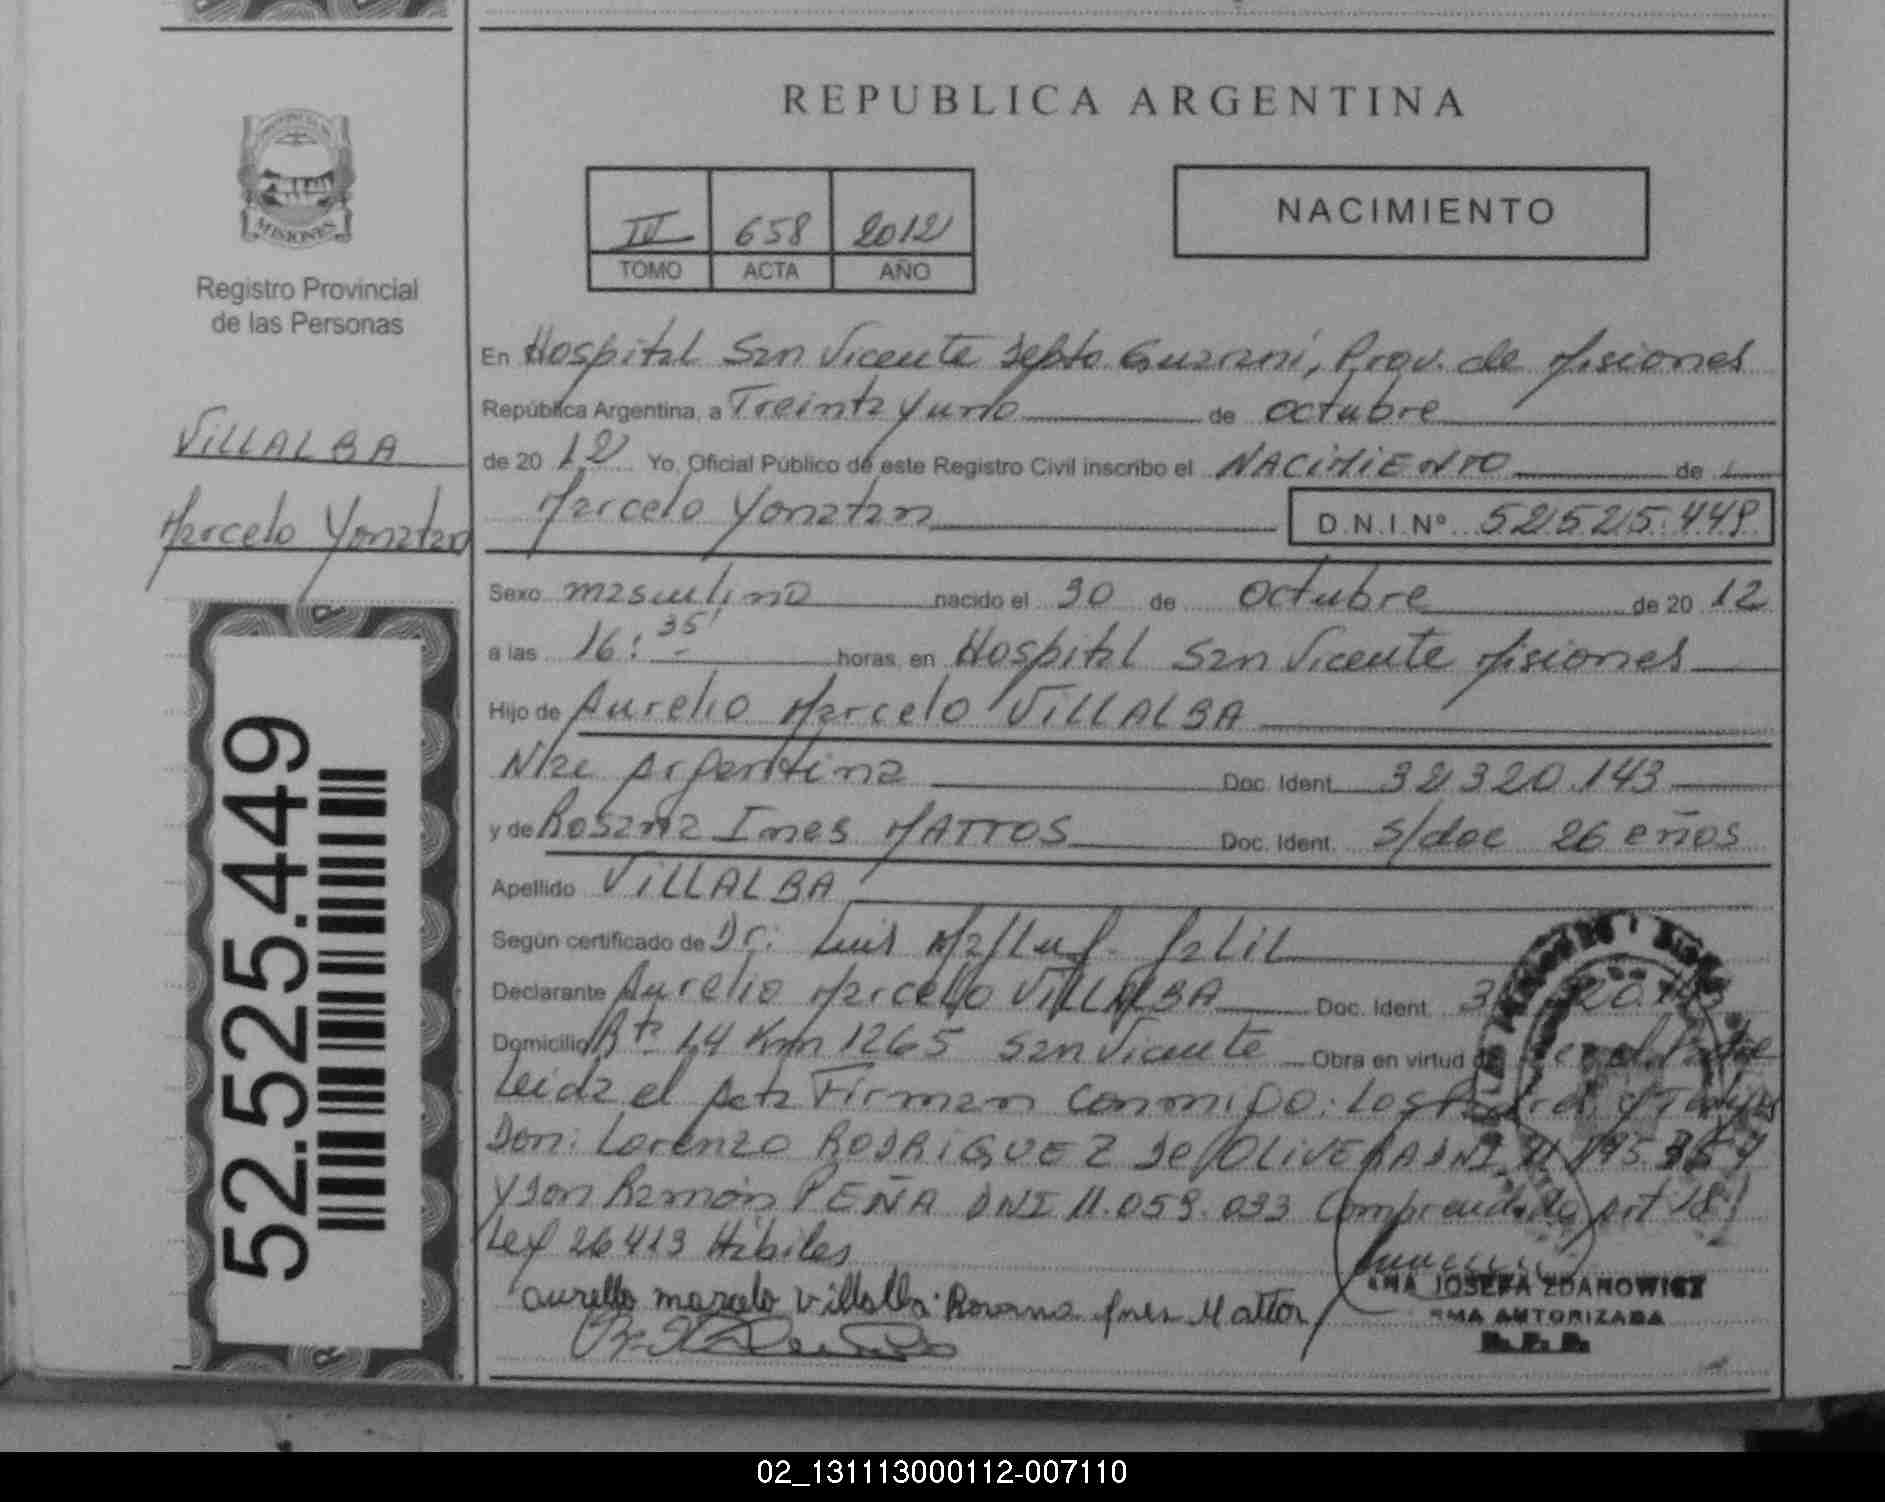 REPUBLICA ARGENTINA
PROVINCIA DE
MISIONES
Registro Provincial
de las Personas
IV 658 2012
TOMO ACTA AÑO
NACIMIENTO
En Hospital San Vicente Depto Guarani, Prov. de Misiones
República Argentina, a Treinta y uno de octubre
de 2012 Yo, Oficial Público de este Registro Civil inscribo el NACIMIENTO de
Marcelo Yonatan D.N.I.Nº 52.525.449
VILLALBA
Marcelo Yonatan
52.525.449
Sexo masculino nacido el 30 de Octubre de 2012
a las 16:35 horas, en Hospital San Vicente Misiones
Hijo de Aurelio Marcelo VILLALBA
Nac Argentina Doc. Ident. 32320.143
y de Rosana Ines MATTOS Doc. Ident. s/doc 26 años
Apellido VILLALBA
Según certificado de Dr: Luis
Declarante Aurelio Marcelo VILLALBA Doc. Ident.
Domicilio Rta 14 Km 1265 San Vicente Obra en virtud de
Leida el Acta Firman conmigo: Los
Don: Lorenzo RODRIGUEZ De OLIVERA DNI
y Don Ramón PEÑA DNI 11.059.033 Comprendido Art 18
Ley 26413 Hábiles
aurelio marcelo villalba Rosana Ines Mattos
ANA JOSEFA ZDANOWICZ
FIRMA AUTORIZADA
R.P.P.
02_131113000112-007110